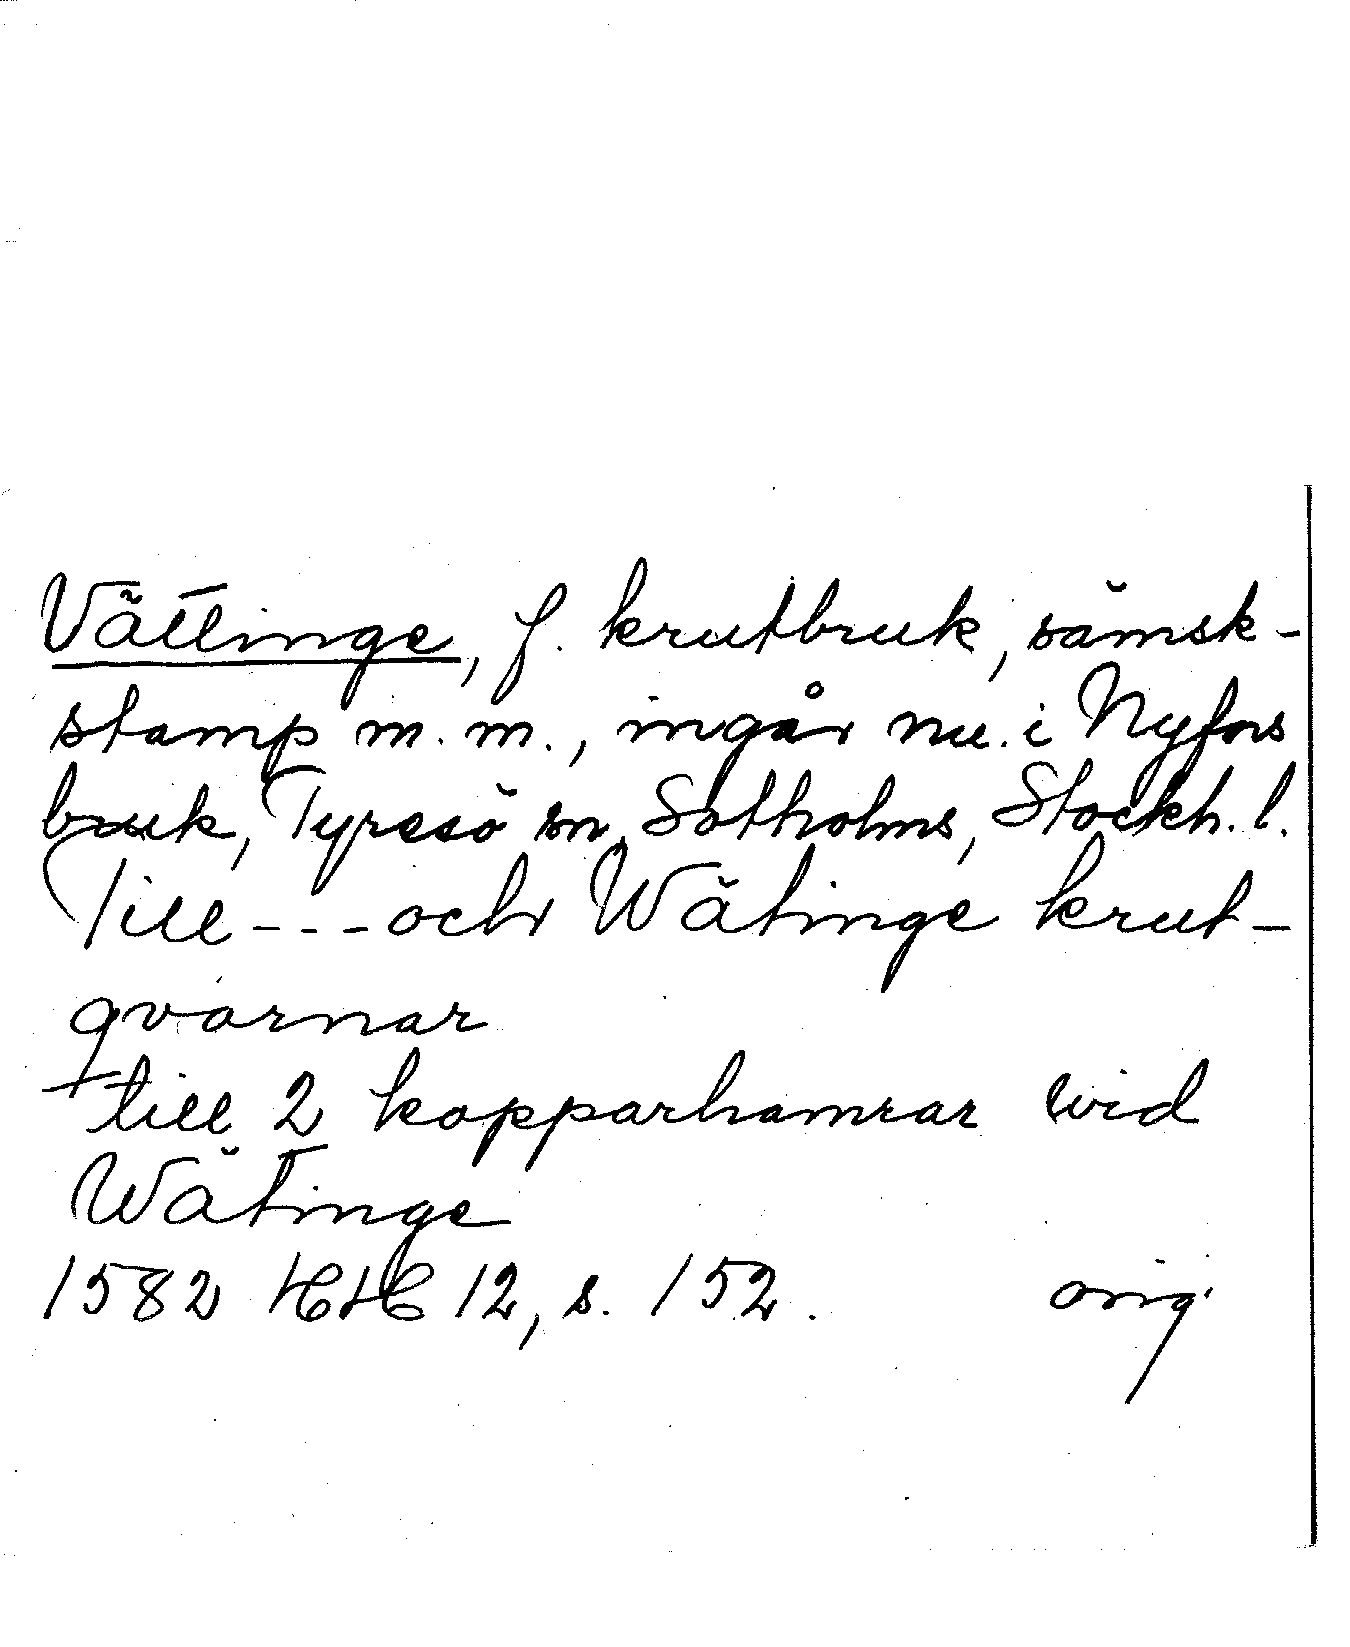 Vättinge, f. krutbruk, sämsk-
stamp m.m., ingår nu. i Nyfors
bruk, Tyresö sn, Sotholms, Stockh. l.
Till --- och Wätinge krut-
qvarnar
till 2 kopparhamrar wid
Wätinge
1582 HH 12, s. 152. orig.